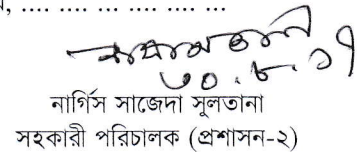 ৩০.৮.১৭
নার্গিস সাজেদা সুলতানা
সহকারী পরিচালক (প্রশাসন-২)